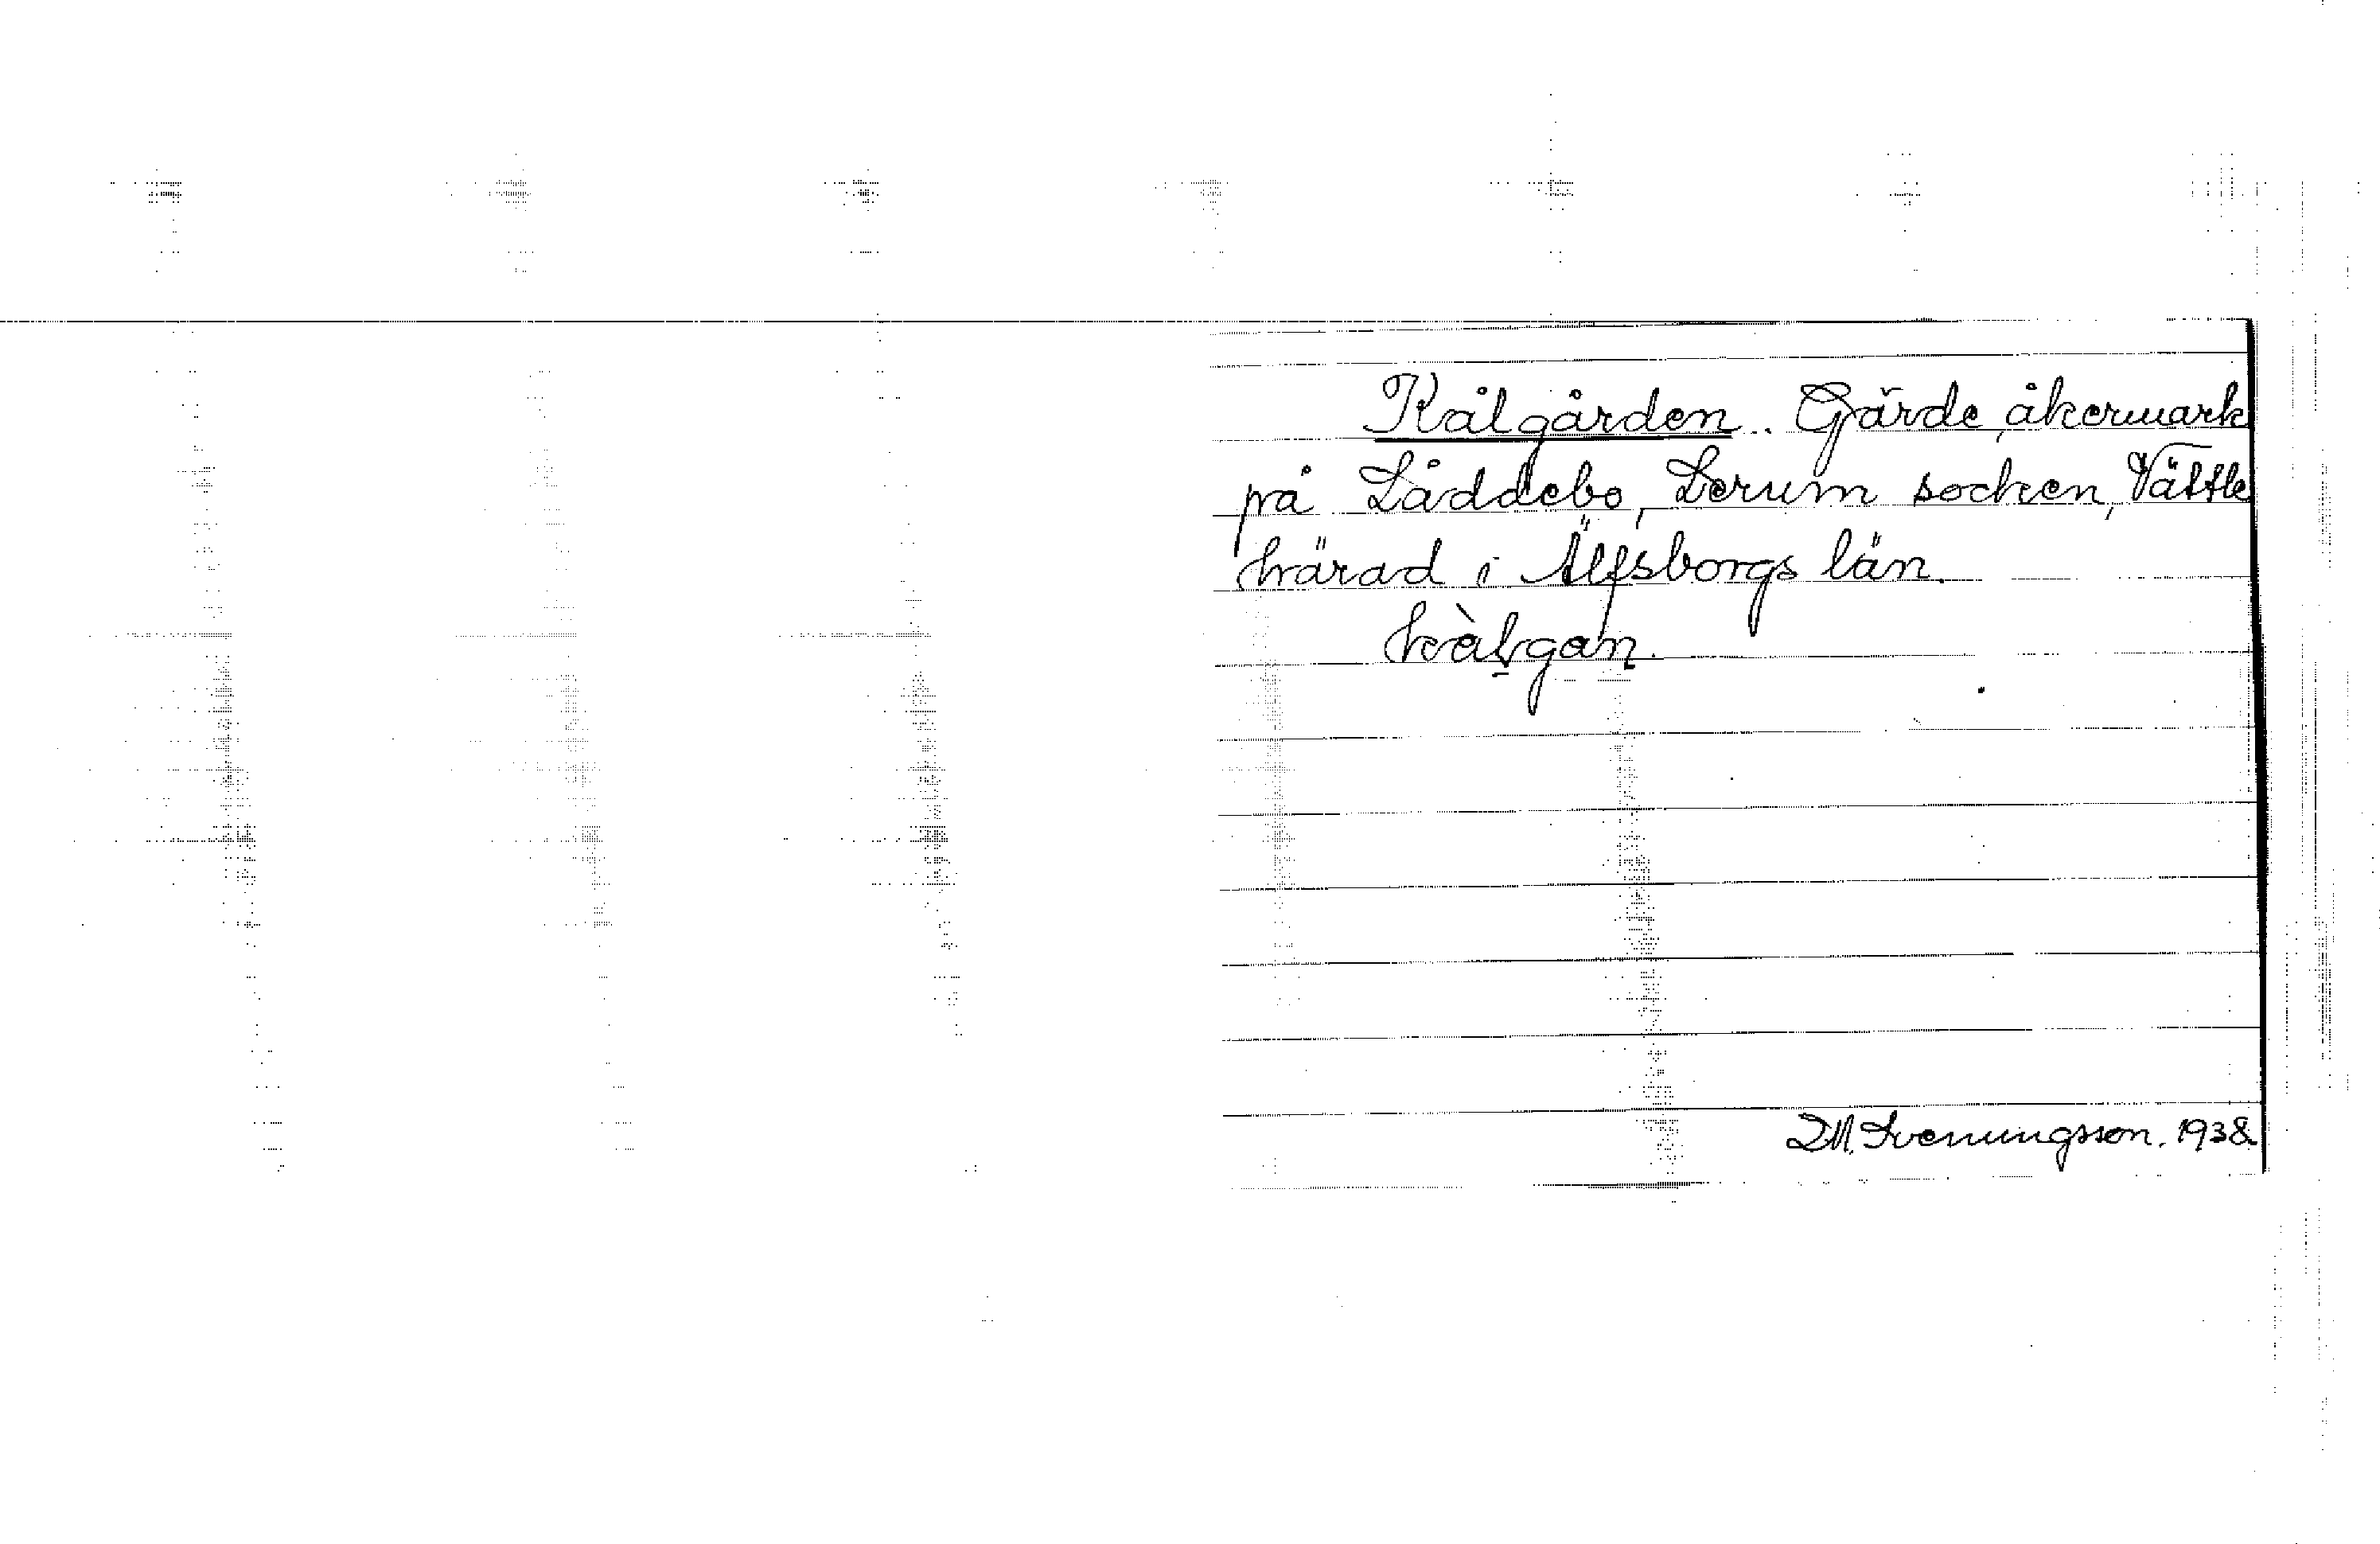 Kålgården. Gärde, åkermark
på Låddebo, Lerum socken, Vättle
härad i Älfsborgs län.
kàlgan.
D.M. Svenungsson. 1938